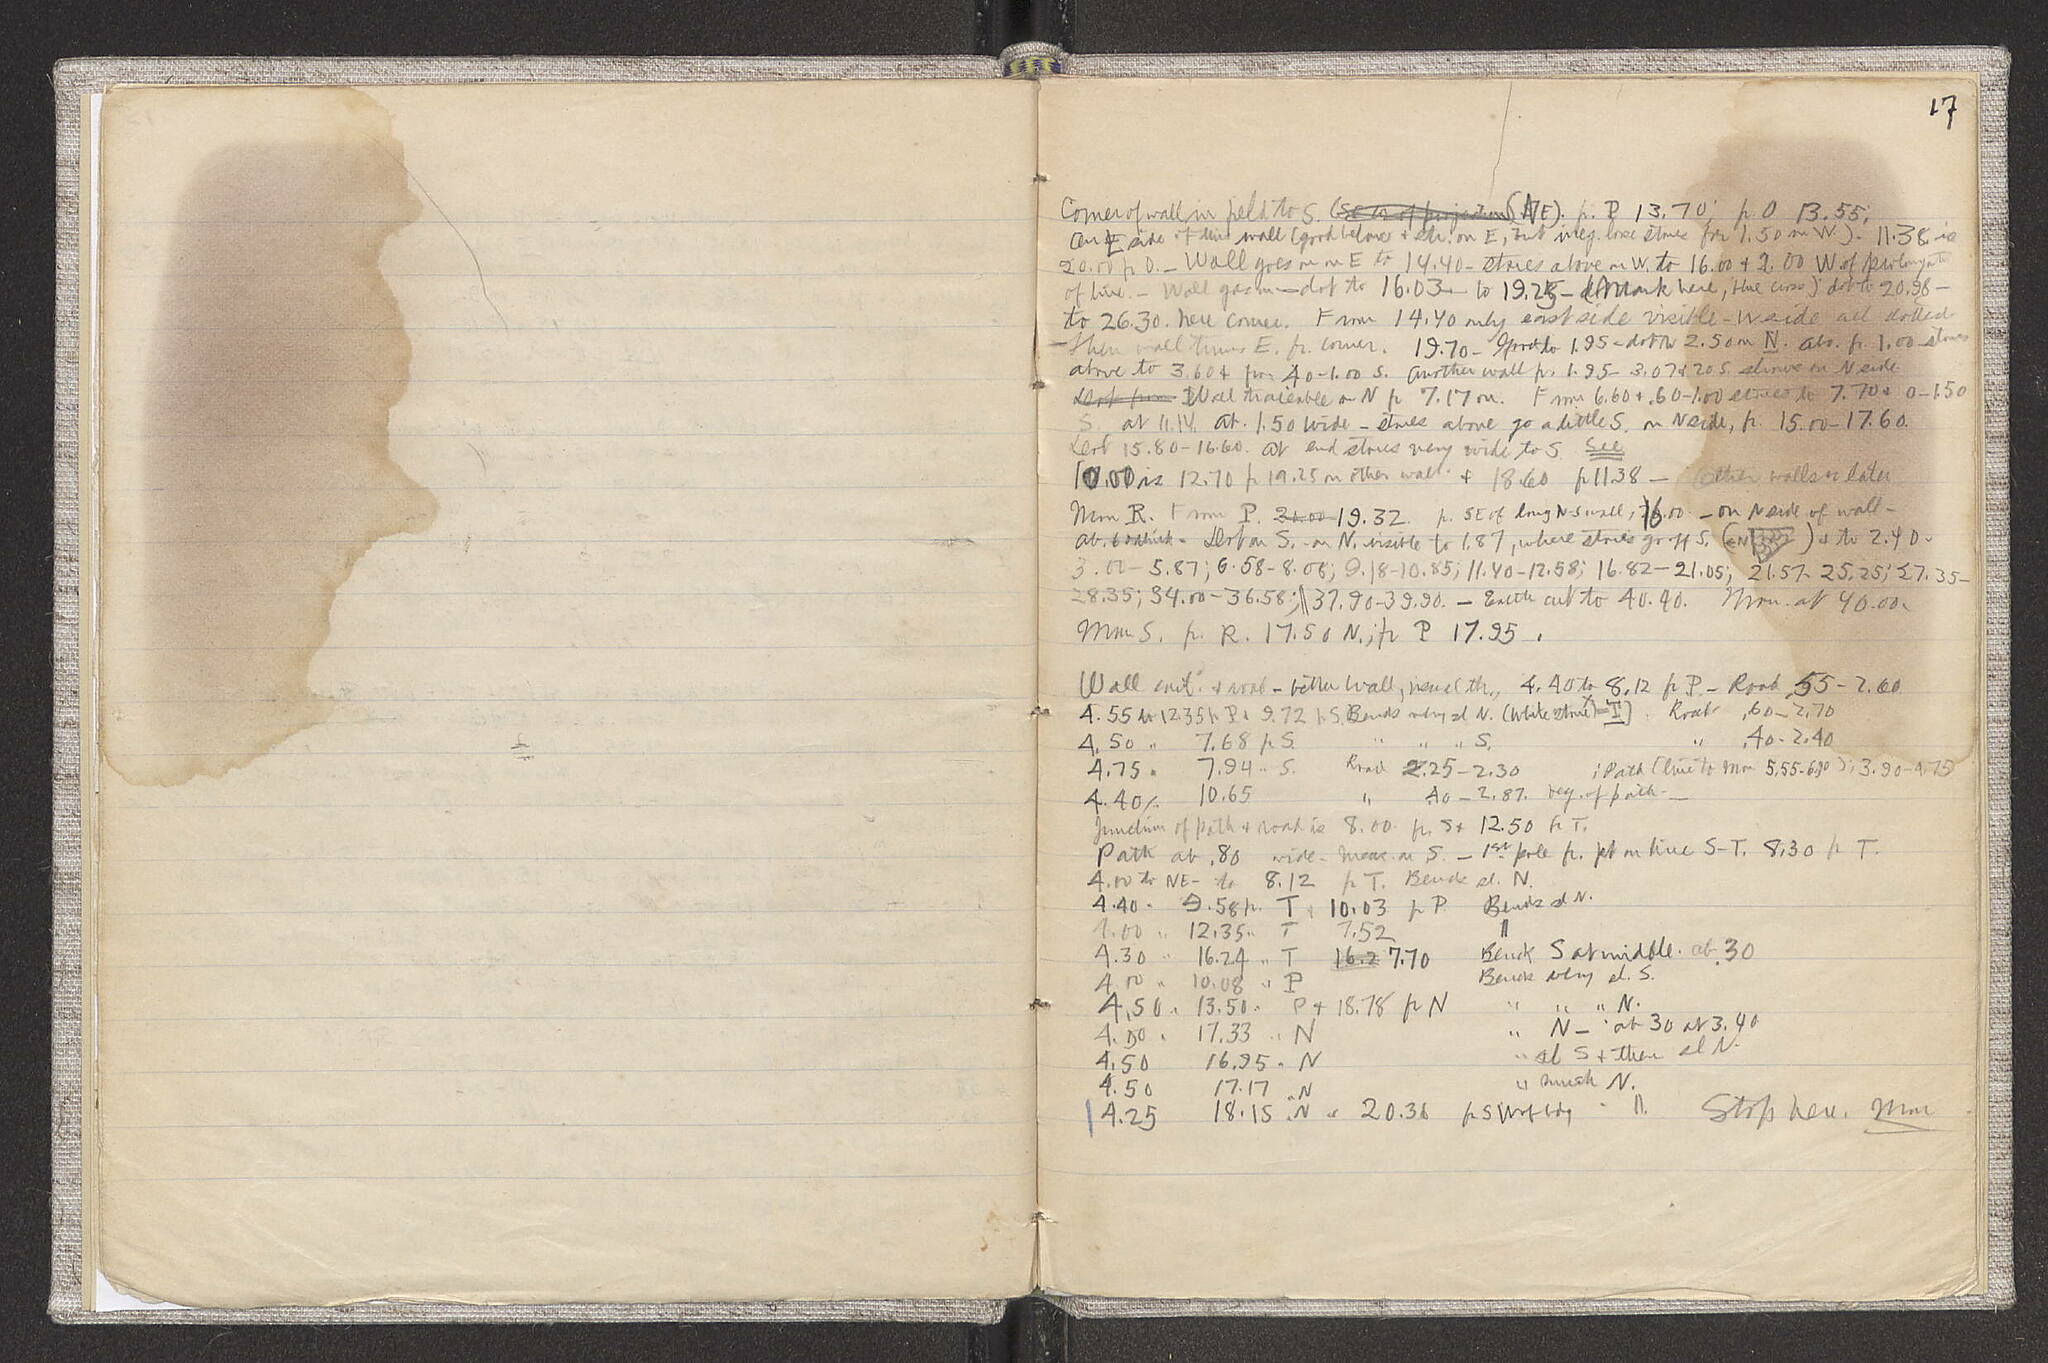 17
Corner of wall in field to S. (NE). fr. P 13.70; fr. O 13.55;
on E side of this wall (good below & str. on E, but irreg. lose stones for 1.50 on W). 11.38 is
20.00 fr O. - Wall goes on on E to 14.40 - stones above on W. to 16.00 & 2.00 W. of
of line. - Wall goes on - dot to 16.03 - to 19.25 - (Mark here, blue cross) dot to 20.98 -
to 26.30. here corner. From 14.40 only east side visible - W side all dotted
Then wall turns E. fr. corner. 19.70 - to 1.95 - dot to 2.50 on N. fr. 1.00 - stones
above to 3.60 & from 40-1.00 S. Another wall fr. 1.95 - 3.07 & 20 S. shows on N side
Wall traceable on N fr 7.17 on. From 6.60 & .60-1.00 stones to 7.70 & 0-1.50
S. at 11.14. ab. 1.50 wide - stones above go a little S. on N side, fr. 15.00-17.60.
Lost 15.80-16.60. at end stones very wide to S. See
10.00 is 12.70 fr 19.25 on other wall & 18.60 fr 11.38 - Other walls later
Mon R. From P. 19.32. fr. SE of long N-S wall, 16.00 - on N side of wall -
ab. 60 thick - Lost on S. - on N. visible to 1.87, where stones go off S. ( N ) & to 2.40 -
3.00-5.87; 6.58-8.08; 9.18-10.85; 11.40-12.58; 16.82-21.05; 21.57-25.25; 27.35-
28.35; 34.00-36.58; 37.90-39.90. - Earth cut to 40.40. Mon. at 40.00.
Mon S. fr. R. 17.50 N.; fr P 17.95.
Wall & road - better wall, usual th., 4.40 to 8.12 fr P - Road .55-2.60
4.55 to 12.35 fr P & 9.72 fr S. Bends very sl N. (White stone = T). Road .60-2.70
4.50 " 7.68 fr S. " " " S. " .40-2.40
4.75 " 7.94 " S. Road .25-2.30 ; Path (line to Mon 5.55-6.90); 3.90-4.75
4.40 " 10.65 " .40-2.87. beg. of path -
Junction of path & road is 8.00 fr. S & 12.50 fr T.
Path ab .80 wide - meas. on S. - 1st pole fr. pt on line S-T. 8.30 fr T.
4.00 to NE - to 8.12 fr T. Bends sl. N.
4.40 " 9.58 fr. T & 10.03 fr P Bends sl N.
4.00 " 12.35 " T 7.52 "
4.30 " 16.24 " T 7.70 Bends S at middle. ab .30
4.00 " 10.08 " P Bends very sl. S.
4.50 " 13.50 " P & 18.78 fr N " " " N.
4.50 " 17.33 " N " N - ab 30 at 3.40
4.50 16.95 " N " sl S & then sl N.
4.50 17.17 " N " much N.
4.25 18.15 " N & 20.36 fr S W of bdg " ". Stop here. Mon